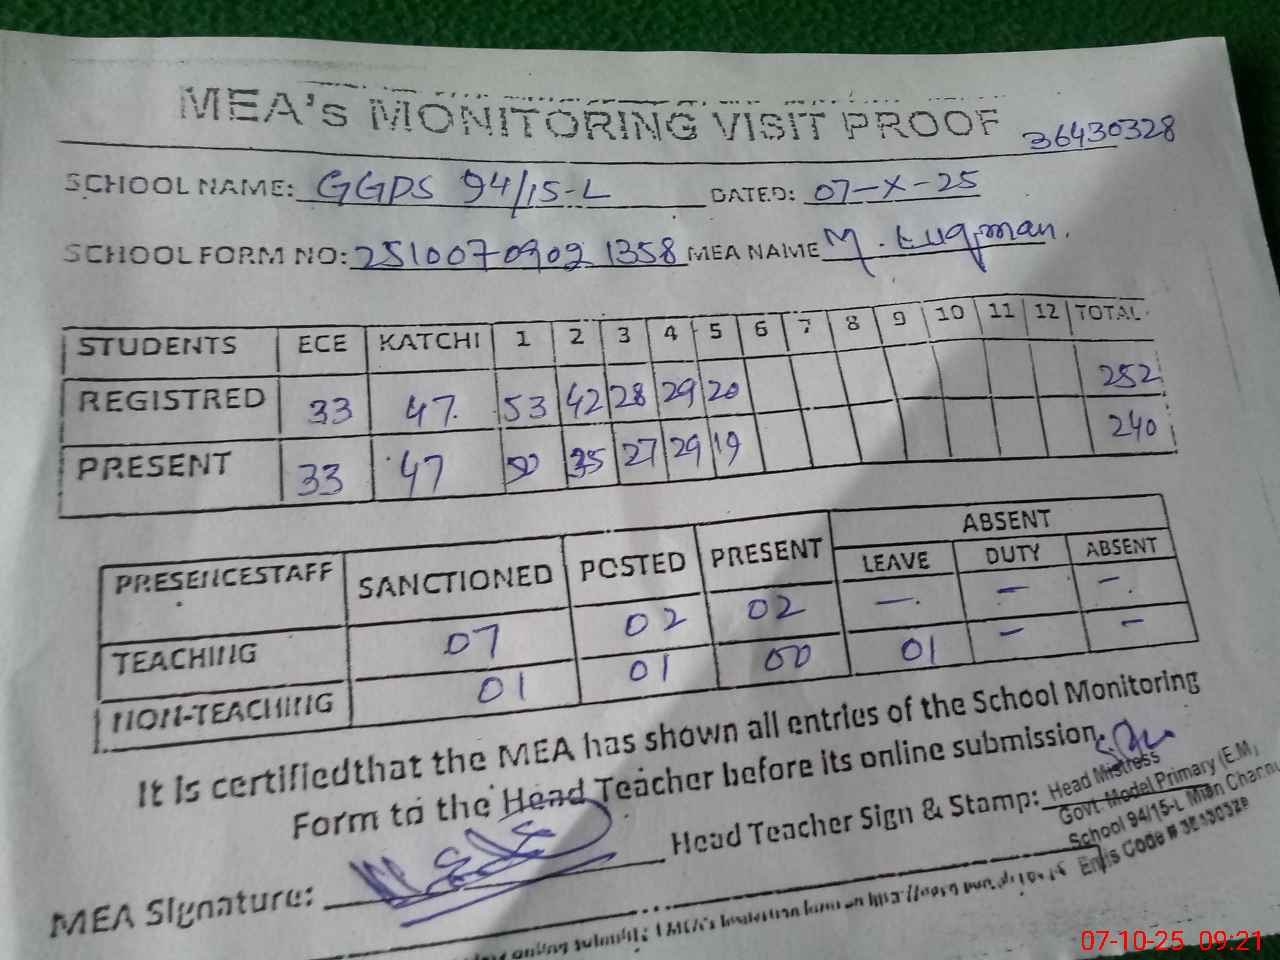 MEA's MONITORING VISIT PROOF 36430328
SCHOOL NAME: GGPS 94/15-L DATED: 07-X-25
SCHOOL FORM NO: 2510070902 1358 MEA NAME M. Luqman.
STUDENTS ECE KATCHI 1 2 3 4 5 6 7 8 9 10 11 12 TOTAL
REGISTRED 33 47 53 42 28 29 20 252
PRESENT 33 47 50 35 27 29 19 240
ABSENT
PRESENCESTAFF SANCTIONED POSTED PRESENT LEAVE DUTY ABSENT
TEACHING 07 02 02 — — —
NON-TEACHING 01 01 00 01 — —
It is certifiedthat the MEA has shown all entries of the School Monitoring
Form to the Head Teacher before its online submission.
MEA Signature: Head Teacher Sign & Stamp:
Head Mistress
Govt. Model Primary (E.M)
School 94/15-L Mian Channu
Emis Code #
07-10-25 09:21